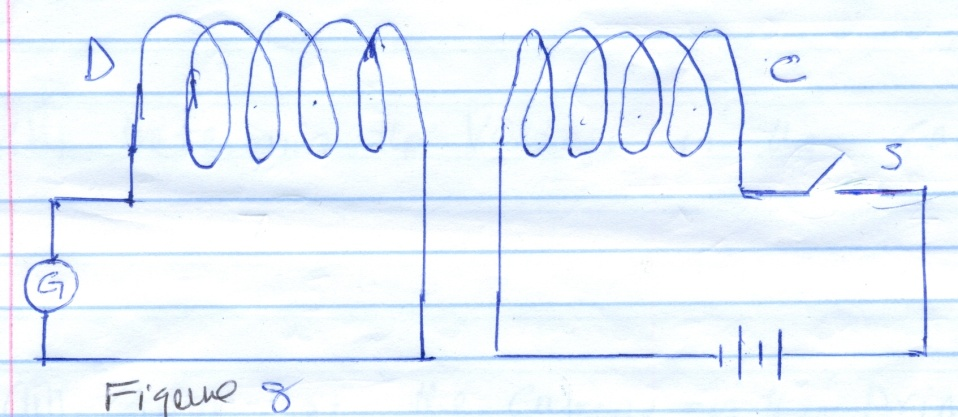 D
C
S
G
Figure 8